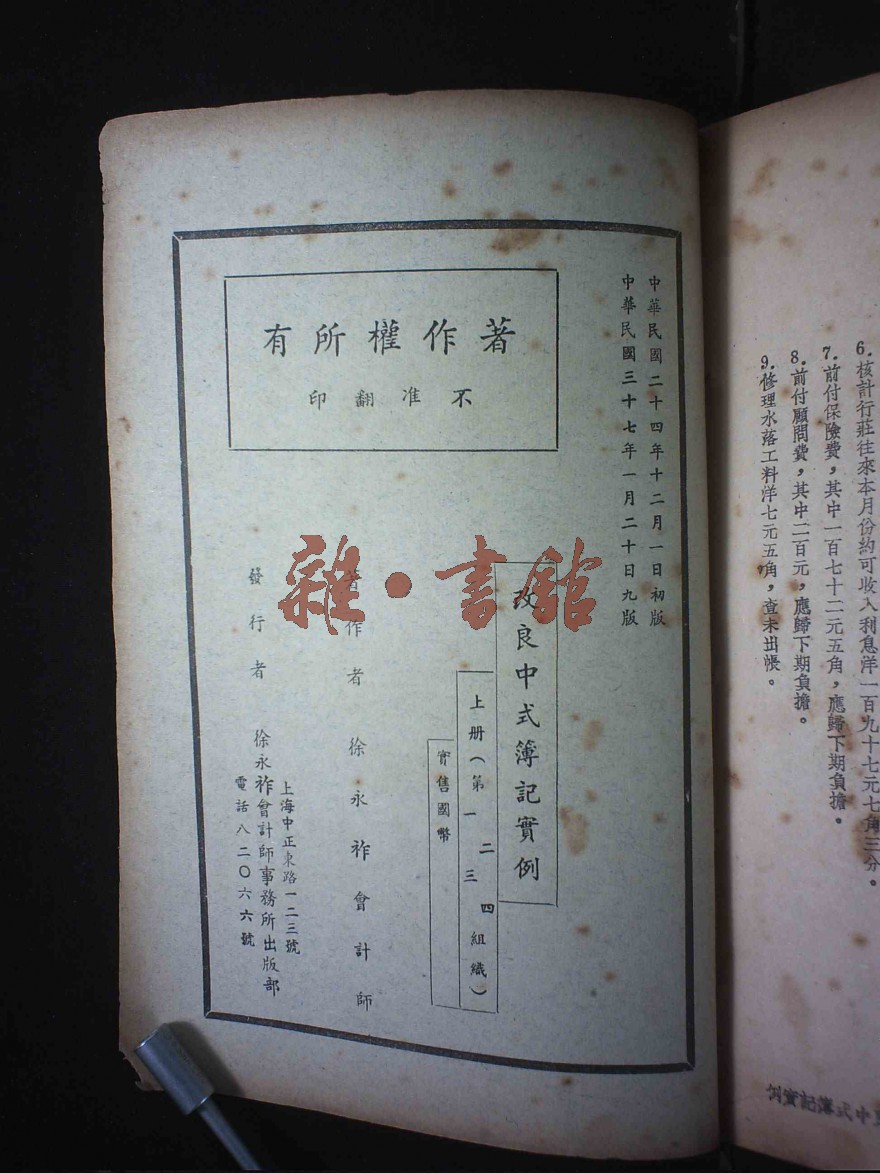 6.核計行莊往來本月份約可收入利息洋一百九十七元七角三分。
7.前付保險費，其中一百七十二元五角，應歸下期負擔。
8.前付顧問費，其中二百元，應歸下期負擔。
9.修理水落工料洋七元五角，查未出帳。
中式簿記實例
中華民國二十四年十二月一日初版
中華民國三十七年一月二十日九版
著作權所有
不准翻印
改良中式簿記實例
上册（第一二三四組織）
實售國幣
著作者 徐永祚會計師
發行者 徐永祚會計師事務所出版部
上海中正東路一二三號
電話八二〇六六號
雜·書館